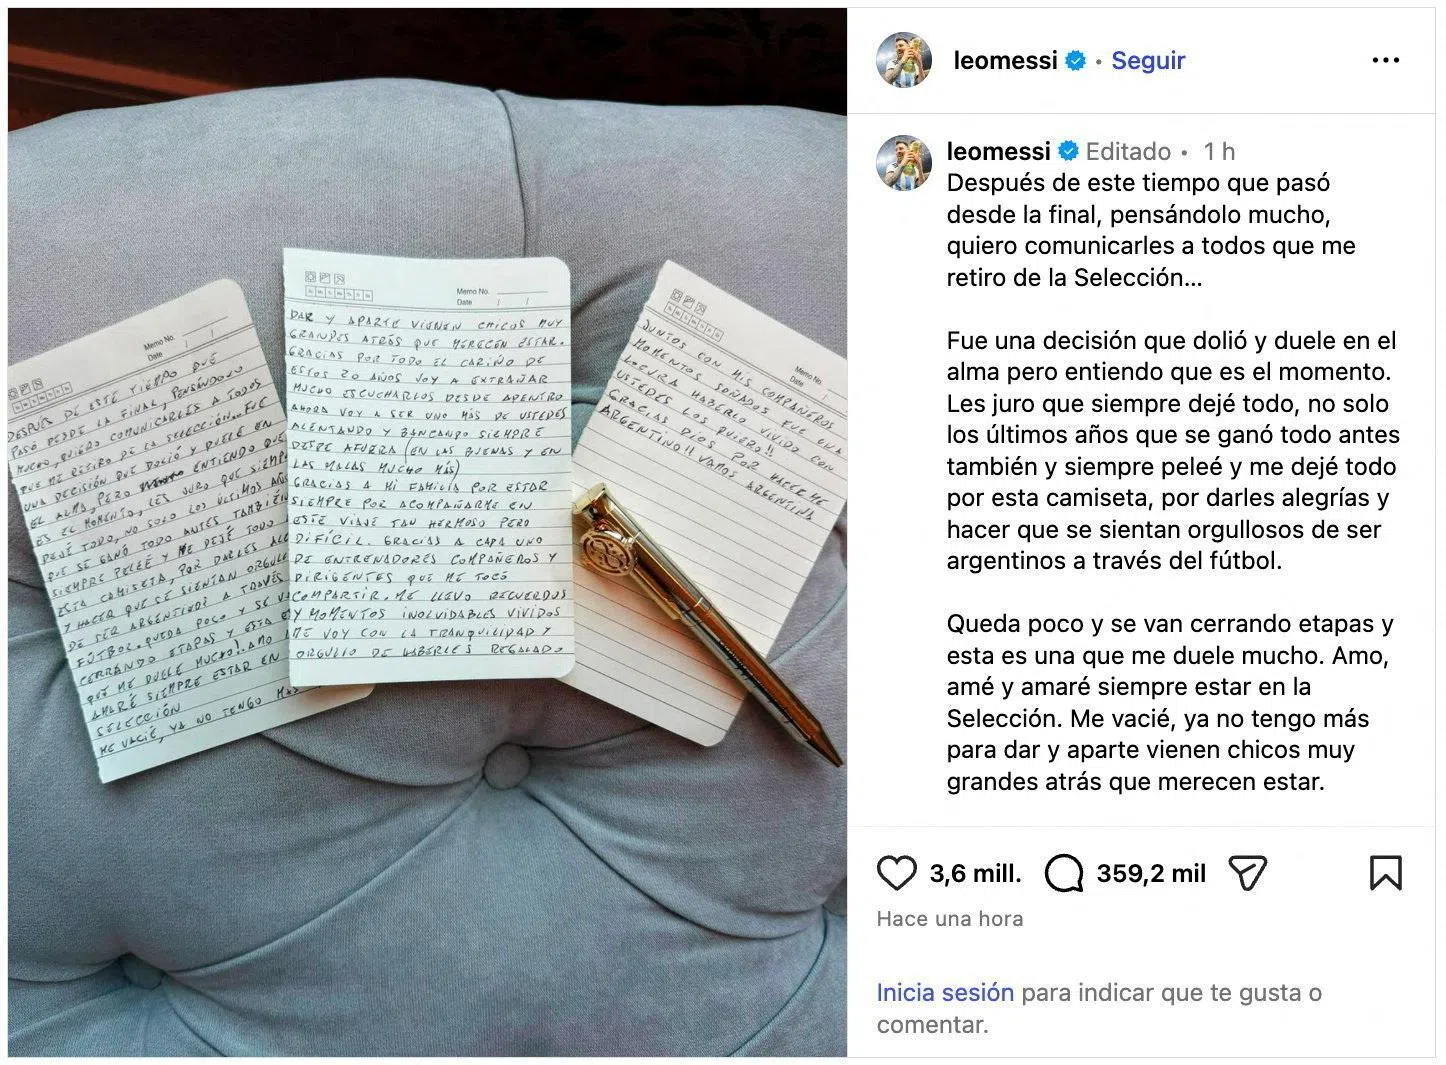 Memo No.
Date / /
DESPUÉS DE ESTE TIEMPO QUE
PASÓ DESDE LA FINAL, PENSÁNDOLO
MUCHO, QUIERO COMUNICARLES A TODOS
QUE ME RETIRO DE LA SELECCIÓN... FUE
UNA DECISIÓN QUE DOLIÓ Y DUELE EN
EL ALMA, PERO ENTIENDO QUE
ES EL MOMENTO, LES JURO QUE SIEMPR
DEJÉ TODO, NO SOLO LOS ÚLTIMOS AÑOS
QUE SE GANÓ TODO ANTES TAMBIÉN
SIEMPRE PELEÉ Y ME DEJÉ TODO
ESTA CAMISETA, POR DARLES ALE
Y HACER QUE SE SIENTAN ORGULL
DE SER ARGENTINOS A TRAVÉS
FÚTBOL. QUEDA POCO Y SE V
CERRANDO ETAPAS Y ESTA E
QUE ME DUELE MUCHO. AMO
AMARÉ SIEMPRE ESTAR EN
SELECCIÓN
ME VACIÉ, YA NO TENGO MÁS
Memo No.
Date / /
DAR Y APARTE VIENEN CHICOS MUY
GRANDES ATRÁS QUE MERECEN ESTAR.
GRACIAS POR TODO EL CARIÑO DE
ESTOS 20 AÑOS VOY A EXTRAÑAR
MUCHO ESCUCHARLOS DESDE ADENTRO
AHORA VOY A SER UNO MÁS DE USTEDES
ALENTANDO Y BANCANDO SIEMPRE
DESDE AFUERA (EN LAS BUENAS Y EN
LAS MALAS MUCHO MÁS)
GRACIAS A MI FAMILIA POR ESTAR
SIEMPRE POR ACOMPAÑARME EN
ESTE VIAJE TAN HERMOSO PERO
DIFÍCIL. GRACIAS A CADA UNO
DE ENTRENADORES COMPAÑEROS Y
DIRIGENTES QUE ME TOCÓ
COMPARTIR. ME LLEVO RECUERDOS
Y MOMENTOS INOLVIDABLES VIVIDOS
ME VOY CON LA TRANQUILIDAD Y
ORGULLO DE HABERLES REGALADO
Memo No.
Date /
JUNTOS CON MIS COMPAÑEROS
MOMENTOS SOÑADOS FUE UNA
LOCURA HABERLO VIVIDO CON
USTEDES LOS QUIERO!!
GRACIAS DIOS POR HACERME
ARGENTINO!! VAMOS ARGENTINA
leomessi • Seguir
leomessi Editado • 1 h
Después de este tiempo que pasó
desde la final, pensándolo mucho,
quiero comunicarles a todos que me
retiro de la Selección...
Fue una decisión que dolió y duele en el
alma pero entiendo que es el momento.
Les juro que siempre dejé todo, no solo
los últimos años que se ganó todo antes
también y siempre peleé y me dejé todo
por esta camiseta, por darles alegrías y
hacer que se sientan orgullosos de ser
argentinos a través del fútbol.
Queda poco y se van cerrando etapas y
esta es una que me duele mucho. Amo,
amé y amaré siempre estar en la
Selección. Me vacié, ya no tengo más
para dar y aparte vienen chicos muy
grandes atrás que merecen estar.
3,6 mill. 359,2 mil
Hace una hora
Inicia sesión para indicar que te gusta o
comentar.